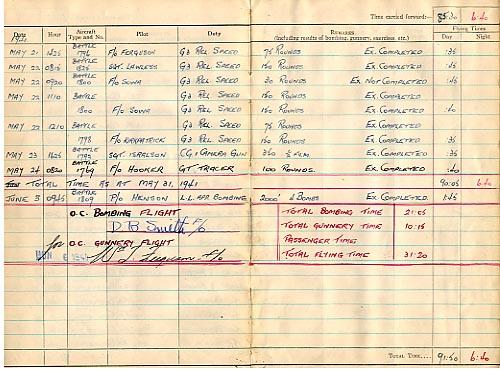 Time carried forward:— 85:30 6:40
Date Hour Aircraft Type and No. Pilot Duty REMARKS (Including results of bombing, gunnery, exercises, etc.) Flying Times Day Night
MAY 21 BATTLE F/O FERGUSON G3 REL SPEED 75 ROUNDS EX. COMPLETED :35
MAY 22 BATTLE SGT. LAWLESS G3 REL SPEED 150 ROUNDS EX. COMPLETED :45
MAY 22 0920 BATTLE 1800 F/O SOWA G3 REL SPEED 30 ROUNDS EX. NOT COMPLETED :45
MAY 22 1110 BATTLE G3 REL SPEED 150 ROUNDS EX. COMPLETED
1800 F/O SOWA G3 REL SPEED 150 ROUNDS EX. COMPLETED
MAY 22 1210 BATTLE G3 REL SPEED 75 ROUNDS EX. COMPLETED
1798 F/O KIRKPATRICK G3 REL SPEED 150 ROUNDS EX. COMPLETED :35
MAY 23 BATTLE SGT. C.G. CAMERA GUN FILM EX. COMPLETED :35
MAY 24 0820 BATTLE 1769 F/O HOOKER GT TRACER 100 ROUNDS. EX. COMPLETED :40
TOTAL TIME AS AT MAY 31, 1941 90:05 6:40
JUNE 3 0945 BATTLE 1809 P/O HENSON L.L. APP. BOMBING 2000' 6 BOMBS EX. COMPLETED 1:45
O.C. BOMBING FLIGHT TOTAL BOMBING TIME 21:05
D B Smith F/O TOTAL GUNNERY TIME 10:15
for O.C. GUNNERY FLIGHT PASSENGER TIME
TOTAL FLYING TIME 31:20
TOTAL TIME.... 91:50 6:40